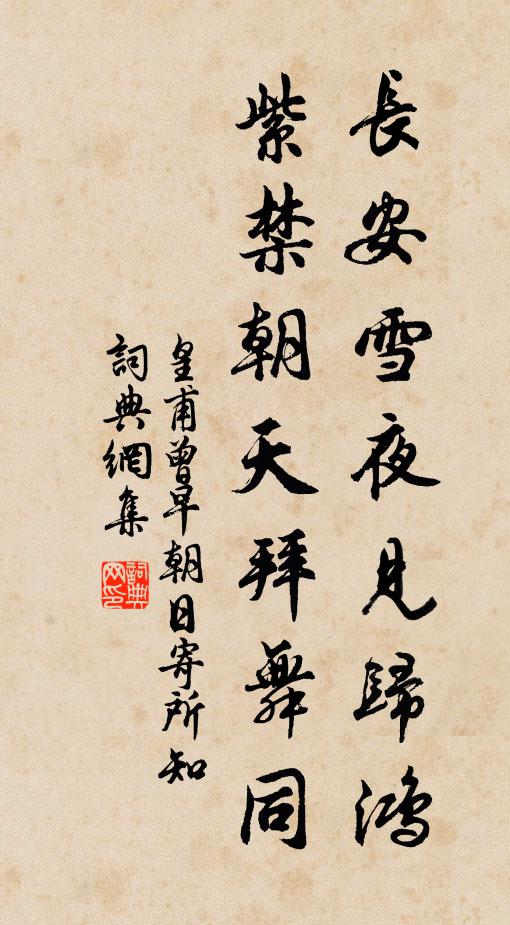 長安雪夜見歸鴻
紫禁朝天拜舞同
皇甫曾早朝日寄所知
詞典網集
詞典网印